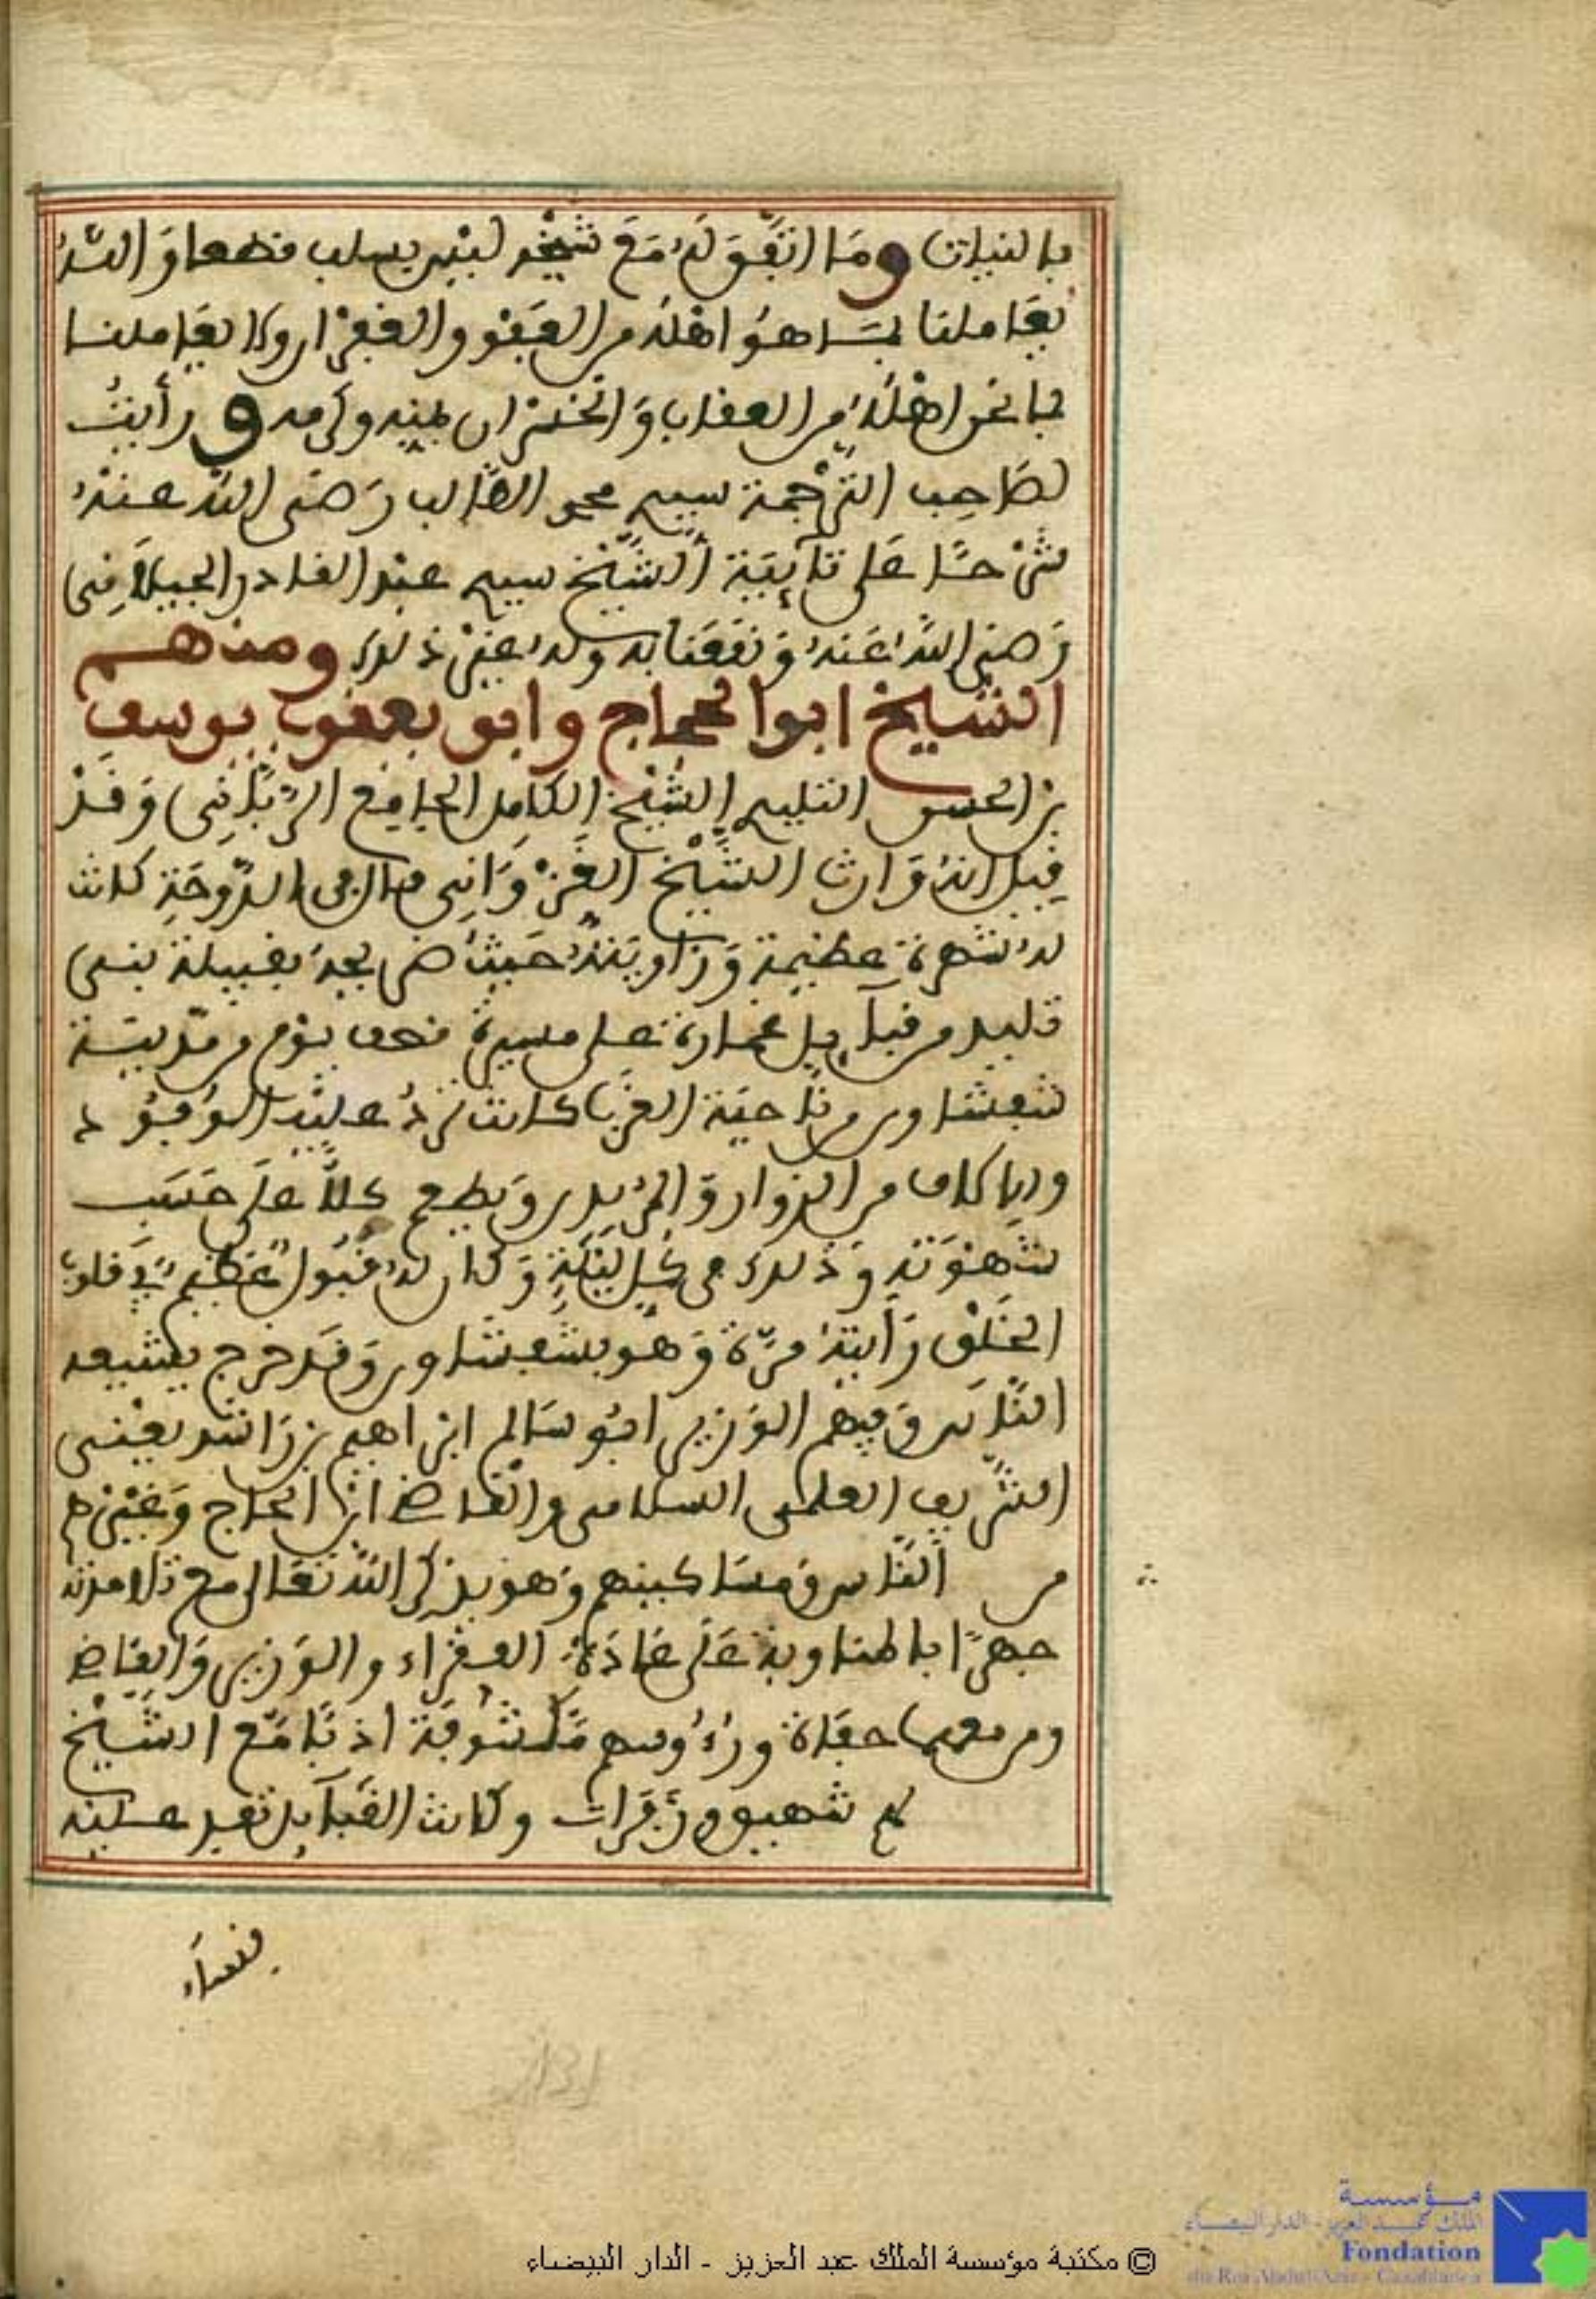 بالنيات وما اتفق له مع شيخه ليس بسلب قطعا والله
يعاملنا بما هو اهله من العفو والغفران ولا يعاملنا
بما نحن اهله من العقاب والخسران بمنه وكرمه ورأيت
لصاحب الترجمة سيدي محمد الطالب رضي الله عنه
شرحا على تائية الشيخ سيدي عبد القادر الجيلاني
رضي الله عنه ونفعنا به وله غير ذلك ومنهم
الشيخ ابو الحجاج وابو يعقوب يوسف
بن الحسن التليدي الشيخ الكامل الجامع الرباني وقد
قيل انه وارث الشيخ الغزواني قال في الدوحة كانت
له شهرة عظيمة وزاويته حيث ضريحه بقبيلة بني
تليد من قبآيل غمارة على مسيرة نحو يوم من مدينة
شفشاون من ناحية الغرب كانت ترد عليه الوفود
والركاب من الزوار والمريدين ويطعم كلا على حسب
شهوته وذلك في كل ليلة وكان له قبول عظيم في قلوب
الخلق رأيته مرة وهو بشفشاون وقد خرج يشيعه
الناس وفيهم الوزير ابو سالم ابراهيم بن راشد يعني
الشريف العلمي السلامي والقاضي ابن الحاج وغيرهم
من الناس ومساكينهم وهو يذكر الله تعالى مع تلامذته
جهرا بالمناوبة على عادة الفقراء والوزير والقاضي
ومن معهما حفاة ورءوسهم مكشوفة ادبا مع الشيخ
لهم شهيق وزفرات وكانت القبآيل تفد عليه
نساء
© مكتبة مؤسسة الملك عبد العزيز - الدار البيضاء
مؤسسة
الملك عبد العزيز - الدار البيضاء
Fondation
du Roi Abdul-Aziz - Casablanca